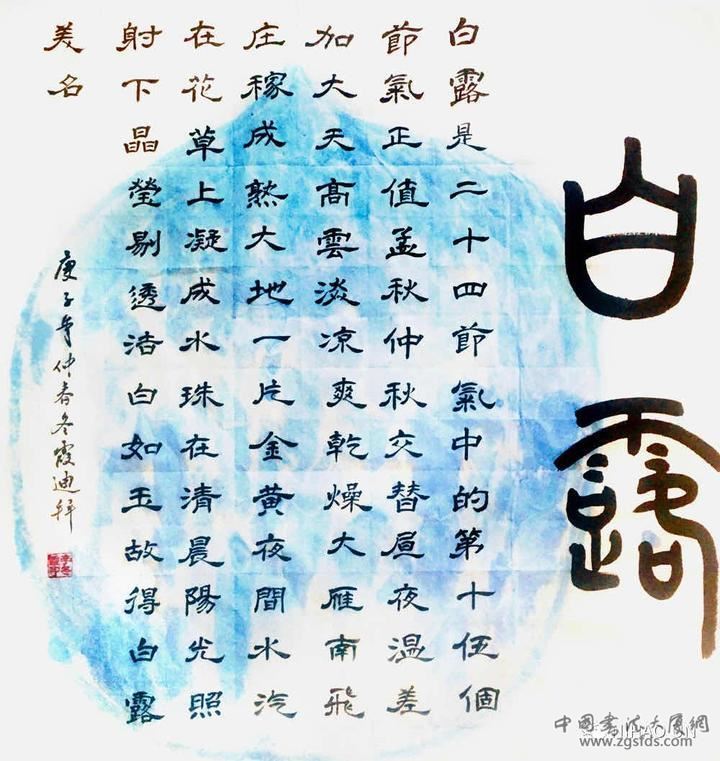 白露
白露是二十四节氣中的第十伍個
節氣正值孟秋仲秋交替昼夜温差
加大天高雲淡凉爽乾燥大雁南飛
庄稼成熟大地一片金黄夜間水汽
在花草上凝成水珠在清晨陽光照
射下晶瑩剔透洁白如玉故得白露
美名
庚子年仲春冬霞迪
中国書法大厦網
www.zgsfds.com